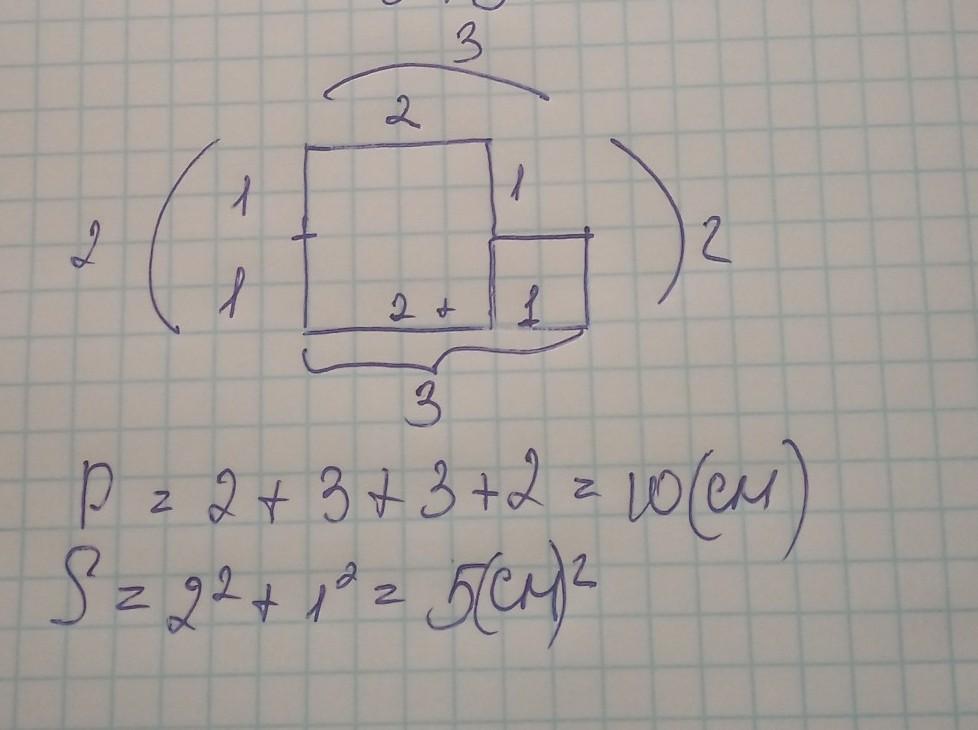 3
2
1 1
2 2
1 2 + 1
3
P = 2 + 3 + 3 + 2 = 10 (см)
S = 2² + 1² = 5 (см)²